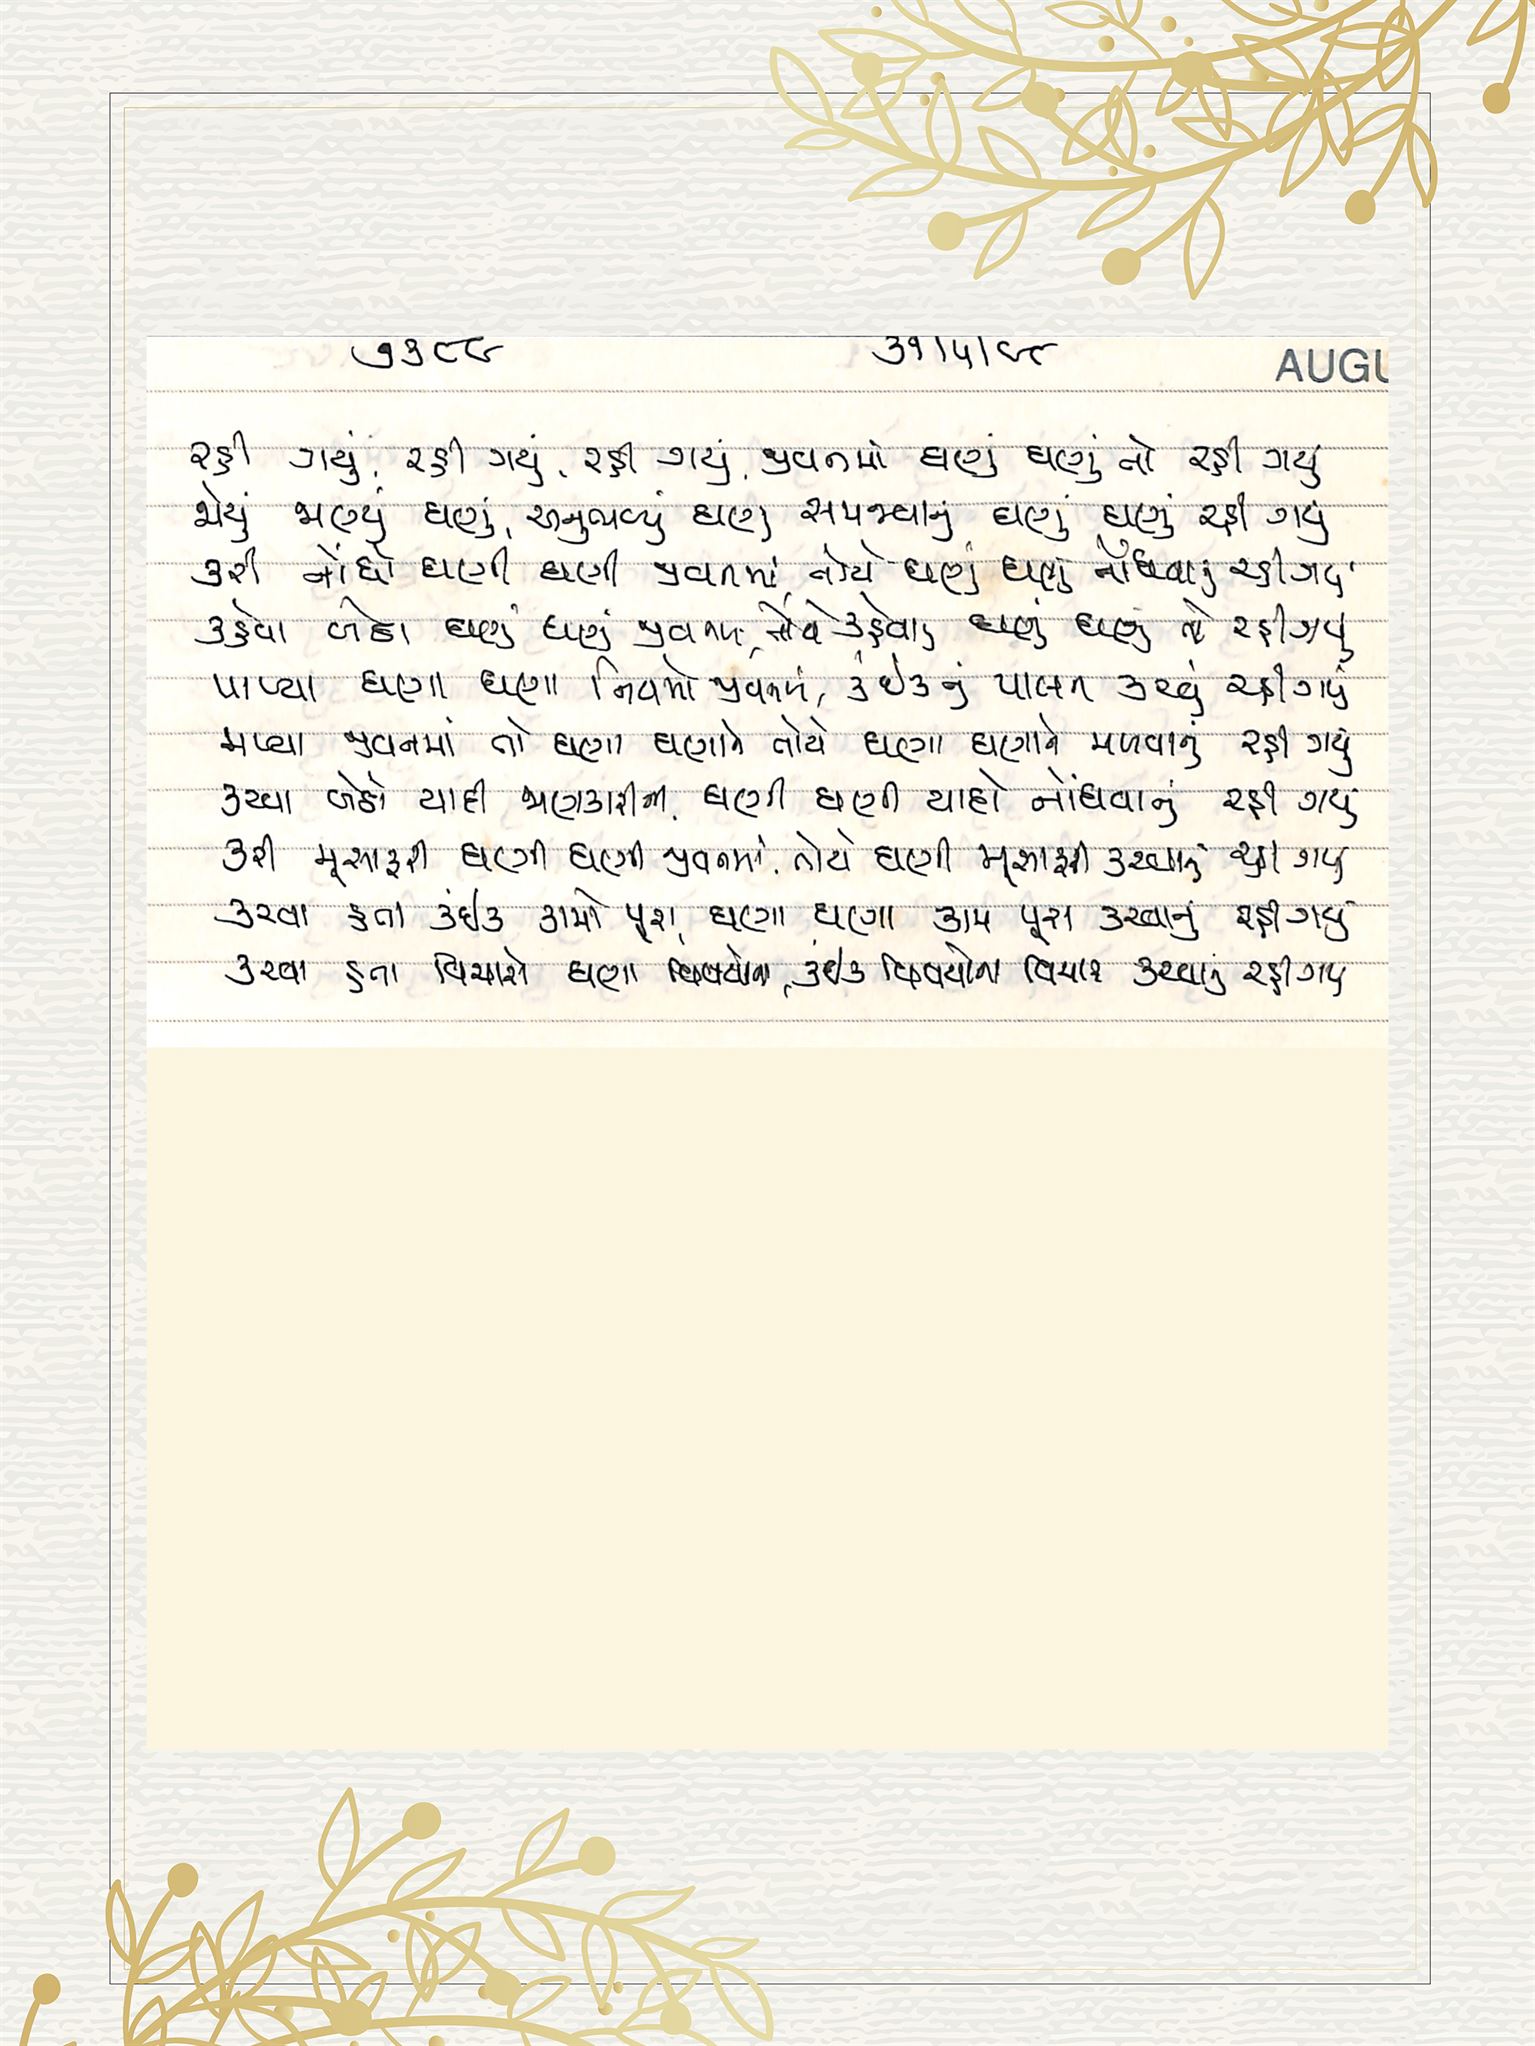 ૭૩૮૮ ૩૧/૫/૯૮ AUGU
રહી ગયું, રહી ગયું, રહી ગયું, જીવનમાં ઘણું ઘણું તો રહી ગયું
જોયું જાણ્યું ઘણું, અનુભવ્યું ઘણું સમજવાનું ઘણું ઘણું રહી ગયું
કરી નોંધો ઘણી ઘણી જીવનમાં, તોયે ઘણું ઘણું નોંધવાનું રહી ગયું
કહેવા બેઠા ઘણું ઘણું જીવનમાં, તોયે કહેવાનું ઘણું ઘણું તો રહી ગયું
પાળ્યા ઘણા ઘણા નિયમો જીવનમાં, કંઈકનું પાલન કરવું રહી ગયું
મળ્યા જીવનમાં તો ઘણા ઘણાને તોયે ઘણા ઘણાને મળવાનું રહી ગયું
કરવા બેઠો યાદી જાણકારીની, ઘણી ઘણી યાદો નોંધવાનું રહી ગયું
કરી મૂસાફરી ઘણી ઘણી જીવનમાં, તોયે ઘણી મૂસાફરી કરવાનું રહી ગયું
કરવા હતા કંઈક કામો પૂરા, ઘણા ઘણા કામ પૂરા કરવાનું રહી ગયું
કરવા હતા વિચારો ઘણા વિષયોના, કંઈક વિષયોના વિચાર કરવાનું રહી ગયું